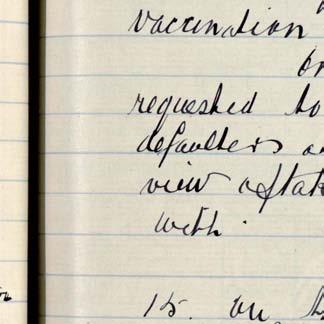 vaccination
or
requested to
defaulters
view of tak
with.
15. on